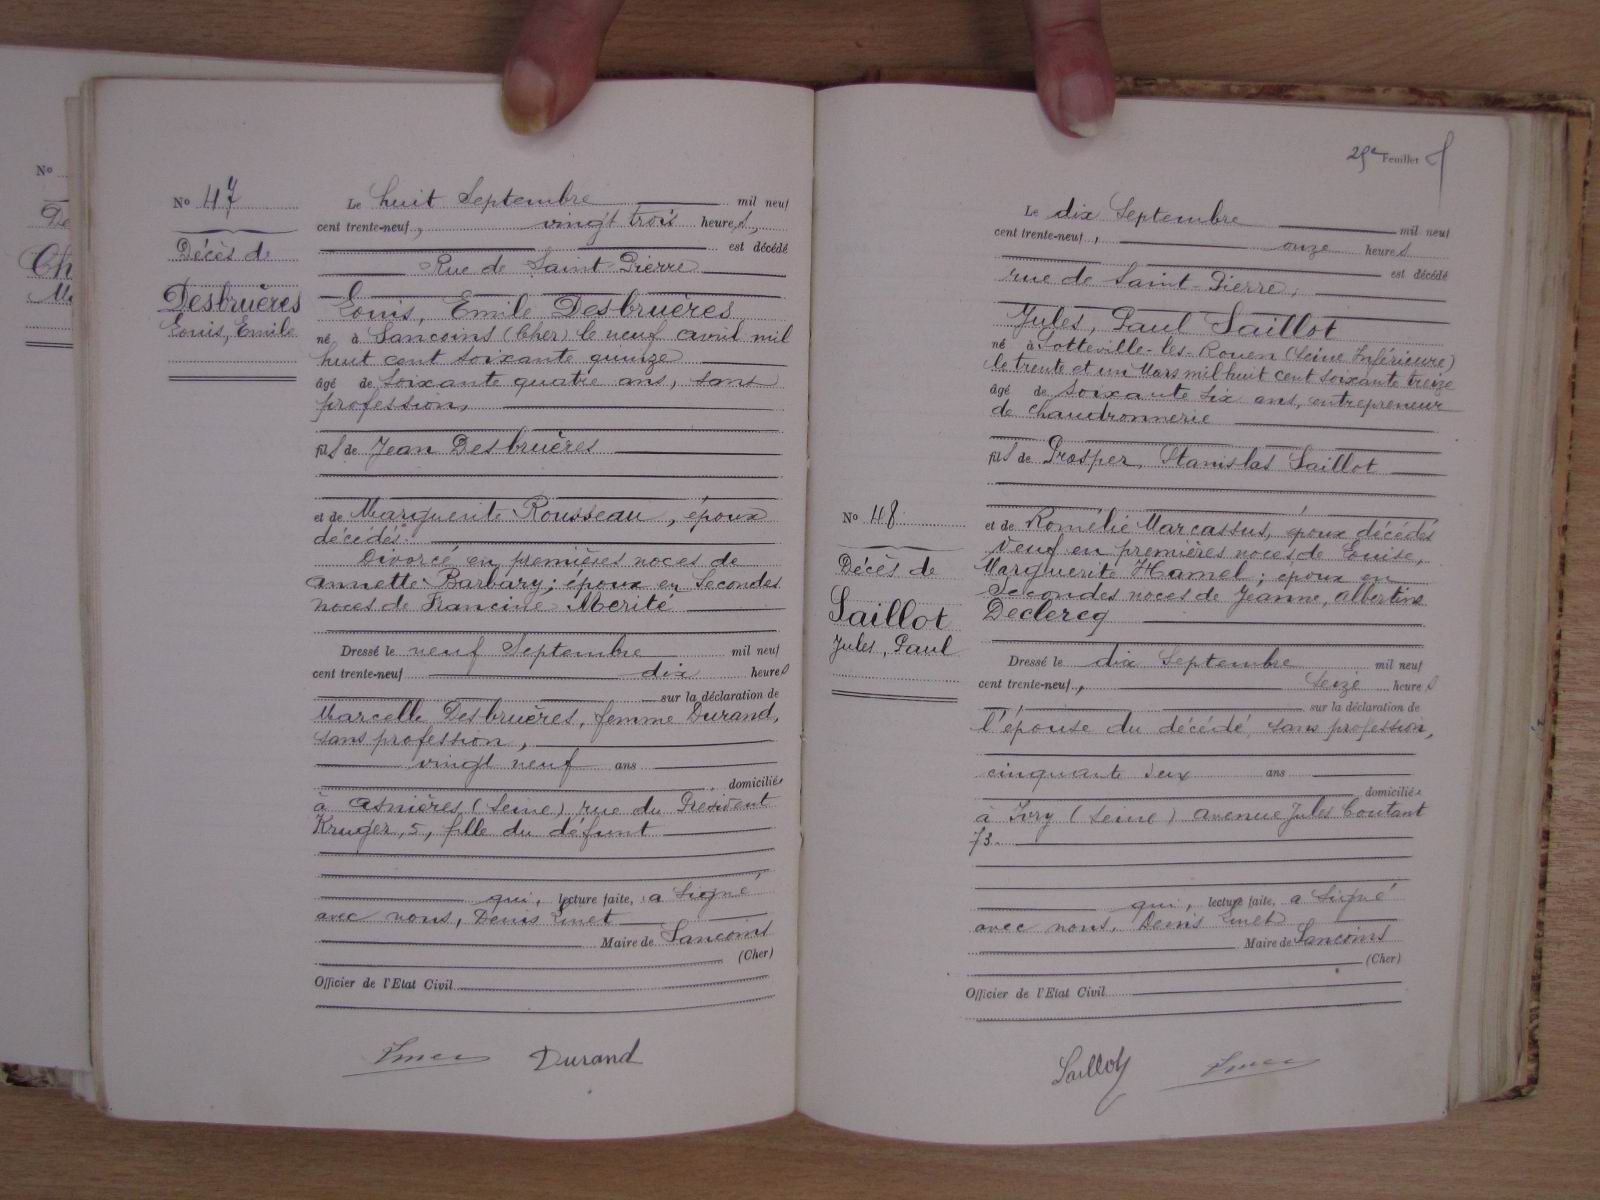 No
De
Ch
Ma
No 47
Décès de
Desbruères
Louis, Emile
Le huit Septembre mil neuf
cent trente-neuf, vingt trois heures,
est décédé
Rue de Saint-Pierre
Louis, Emile Desbruères
né à Sancoins (Cher) le neuf avril mil
huit cent soixante quinze
âgé de soixante quatre ans, sans
profession,
fils de Jean Desbruères
et de Marguerite Rousseau, époux
décédés.
Divorcé en premières noces de
Annette Barbary; époux en secondes
noces de Francine Mérité
Dressé le neuf Septembre mil neuf
cent trente-neuf dix heures
sur la déclaration de
Marcelle Desbruères, femme Durand,
sans profession,
vingt neuf ans
domiciliée
à Asnières (Seine) rue du Président
Kruger, 5, fille du défunt
qui, lecture faite, a signé
avec nous, Denis
Maire de Sancoins
(Cher)
Officier de l'Etat Civil
Durand
25e Feuillet
No 48
Décès de
Saillot
Jules, Paul
Le dix Septembre mil neuf
cent trente-neuf, onze heures
est décédé
rue de Saint-Pierre,
Jules, Paul Saillot
né à Sotteville-les-Rouen (Seine Inférieure)
le trente et un Mars mil huit cent soixante treize
âgé de soixante six ans, entrepreneur
de chaudronnerie
fils de Prosper, Stanislas Saillot
et de Romélie Marcassus, époux décédés
Veuf en premières noces de Louise,
Marguerite Hamel; époux en
secondes noces de Jeanne, Albertine
Declercq
Dressé le dix Septembre mil neuf
cent trente-neuf, seize heures
sur la déclaration de
l'épouse du décédé, sans profession,
cinquante deux ans
domiciliée
à Ivry (Seine) avenue Jules Coutant
73.
qui, lecture faite, a signé
avec nous, Denis
Maire de Sancoins
(Cher)
Officier de l'Etat Civil
Saillot